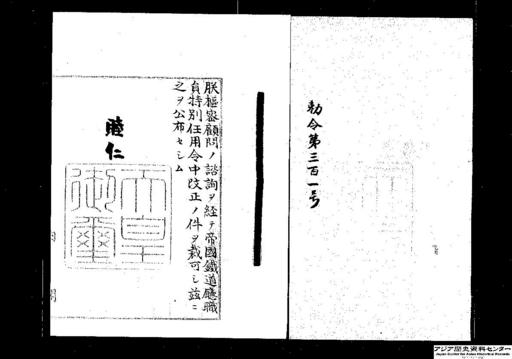 勅令第三百一号
朕樞密顧問ノ諮詢ヲ経テ帝國鐵道廳職
員特別任用令中改正ノ件ヲ裁可シ茲ニ
之ヲ公布セシム
睦仁
天皇
御璽
アジア歴史資料センター
Japan Center for Asian Historical Records